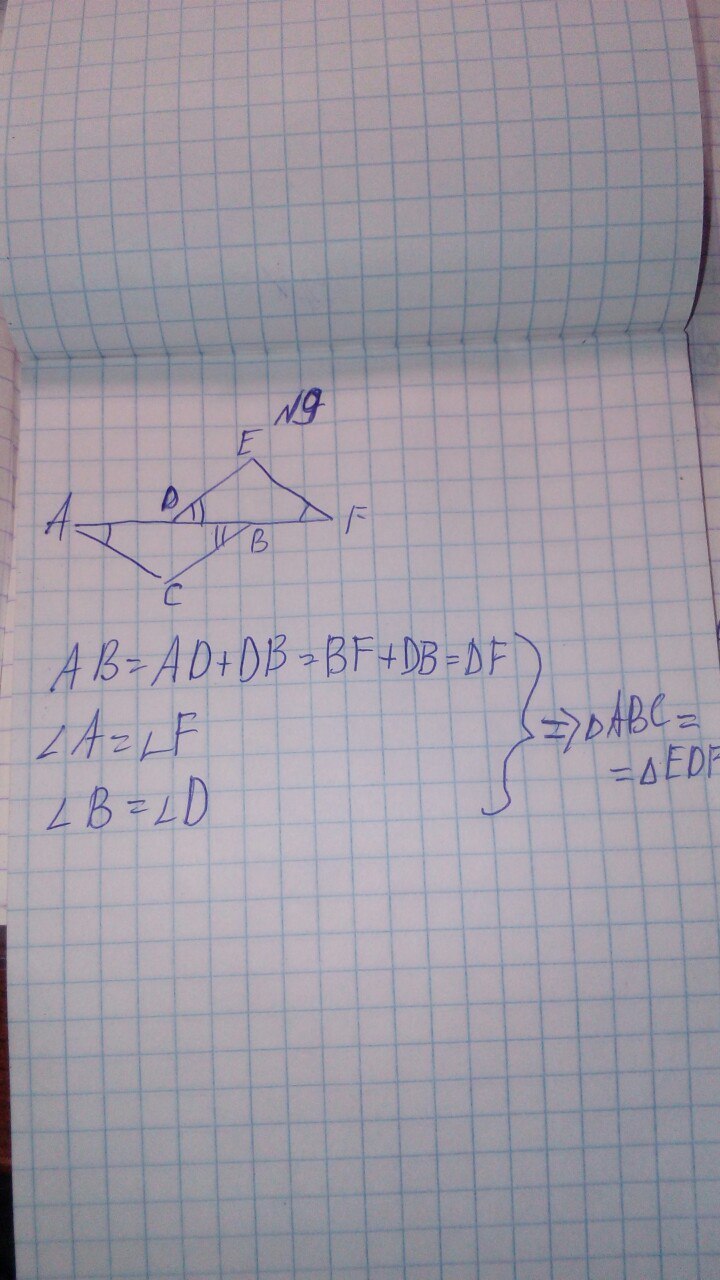 N9
E
D
A
F
B
C
AB=AD+DB=BF+DB=DF
∠A=∠F
∠B=∠D
⇒ΔABC=
=ΔEDF